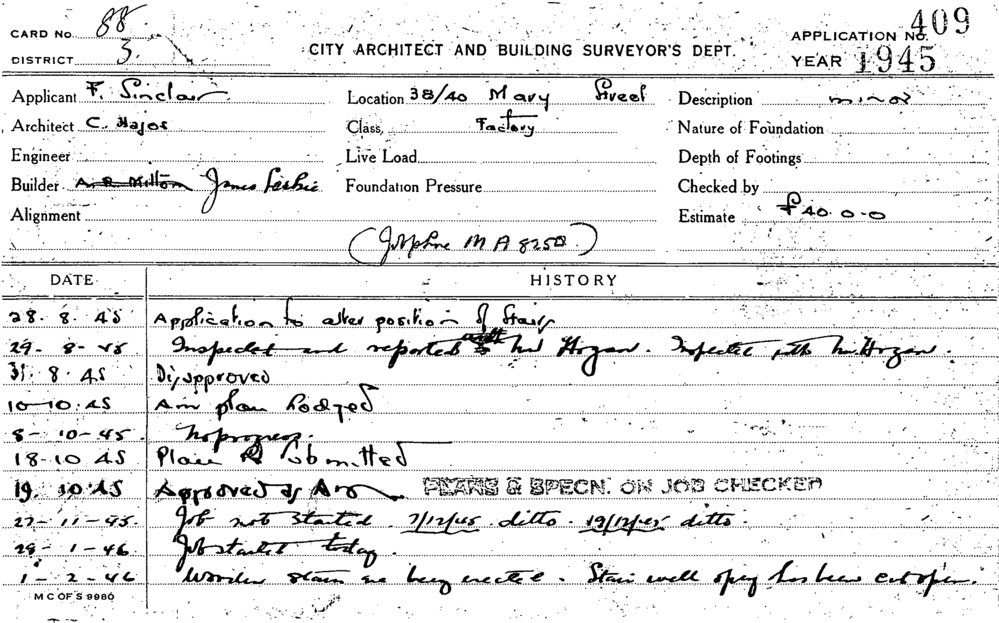 CARD No. 88
DISTRICT 3.
CITY ARCHITECT AND BUILDING SURVEYOR'S DEPT.
APPLICATION No. 409
YEAR 1945
Applicant F. Sinclair Location 38/40 Mary Street Description minor
Architect C. Hajos Class, Factory Nature of Foundation
Engineer Live Load Depth of Footings
Builder A. R. Mitton James Leslie Foundation Pressure Checked by
Alignment Estimate £40.0.0
(Job phone MA 8250)
DATE HISTORY
28. 8. 45 Application to alter position of Stairs
29- 8-45 Inspected and reported with Mr Hogan. Inspected with Mr. Hogan.
31. 8. 45 Disapproved
10-10.45 Am plan Lodged
8-10-45. No progress.
18-10 45 Plan Re Submitted
19. 10.45 Approved as Am PLANS & SPECN. ON JOB CHECKED
27-11-45. Job not started. 7/12/45 ditto. 19/12/45 ditto.
29-1-46 Job started today.
1-2-46 Wooden stairs are being erected. Stair well opng has been cut open.
M C OF S 9980